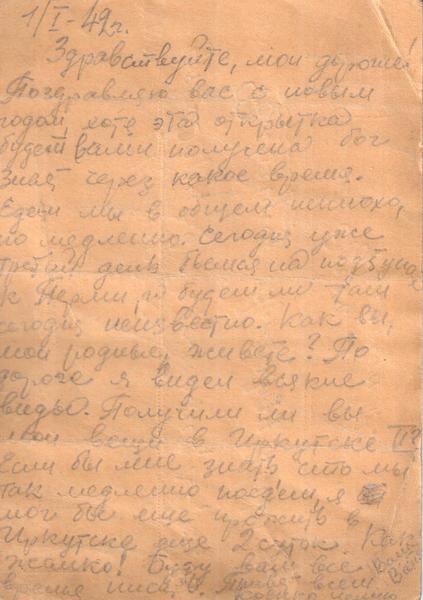 1/I-42г.
Здравствуйте, мои дорогие!
Поздравляю вас с новым
годом, хотя эта открытка
будет вами получена бог
знает через какое время.
Едем мы в общем неплохо,
но медленно. Сегодня уже
третий день бьемся на подступах
к Перми, и будем ли там
сегодня неизвестно. Как вы,
мои родные, живете? По
дороге я видел всякие
виды. Получили ли вы
мои вещи в Иркутске II?
Если бы мне знать что мы
так медленно поедем, я
мог бы еще прожить в
Иркутске еще 2 суток. Как
жалко! Буду вам все
время писать. Привет всем
Ваш